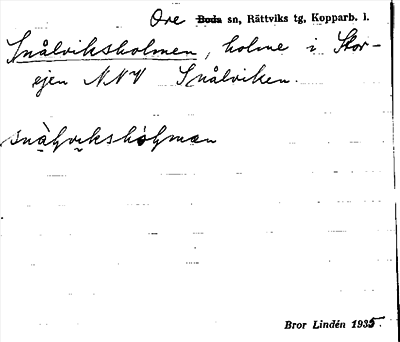 Ore Boda sn, Rättviks tg, Kopparb. l.
Snålviksholmen, holme i Skor-
ejen NNV Snålviken.
Bror Lindén 1935.